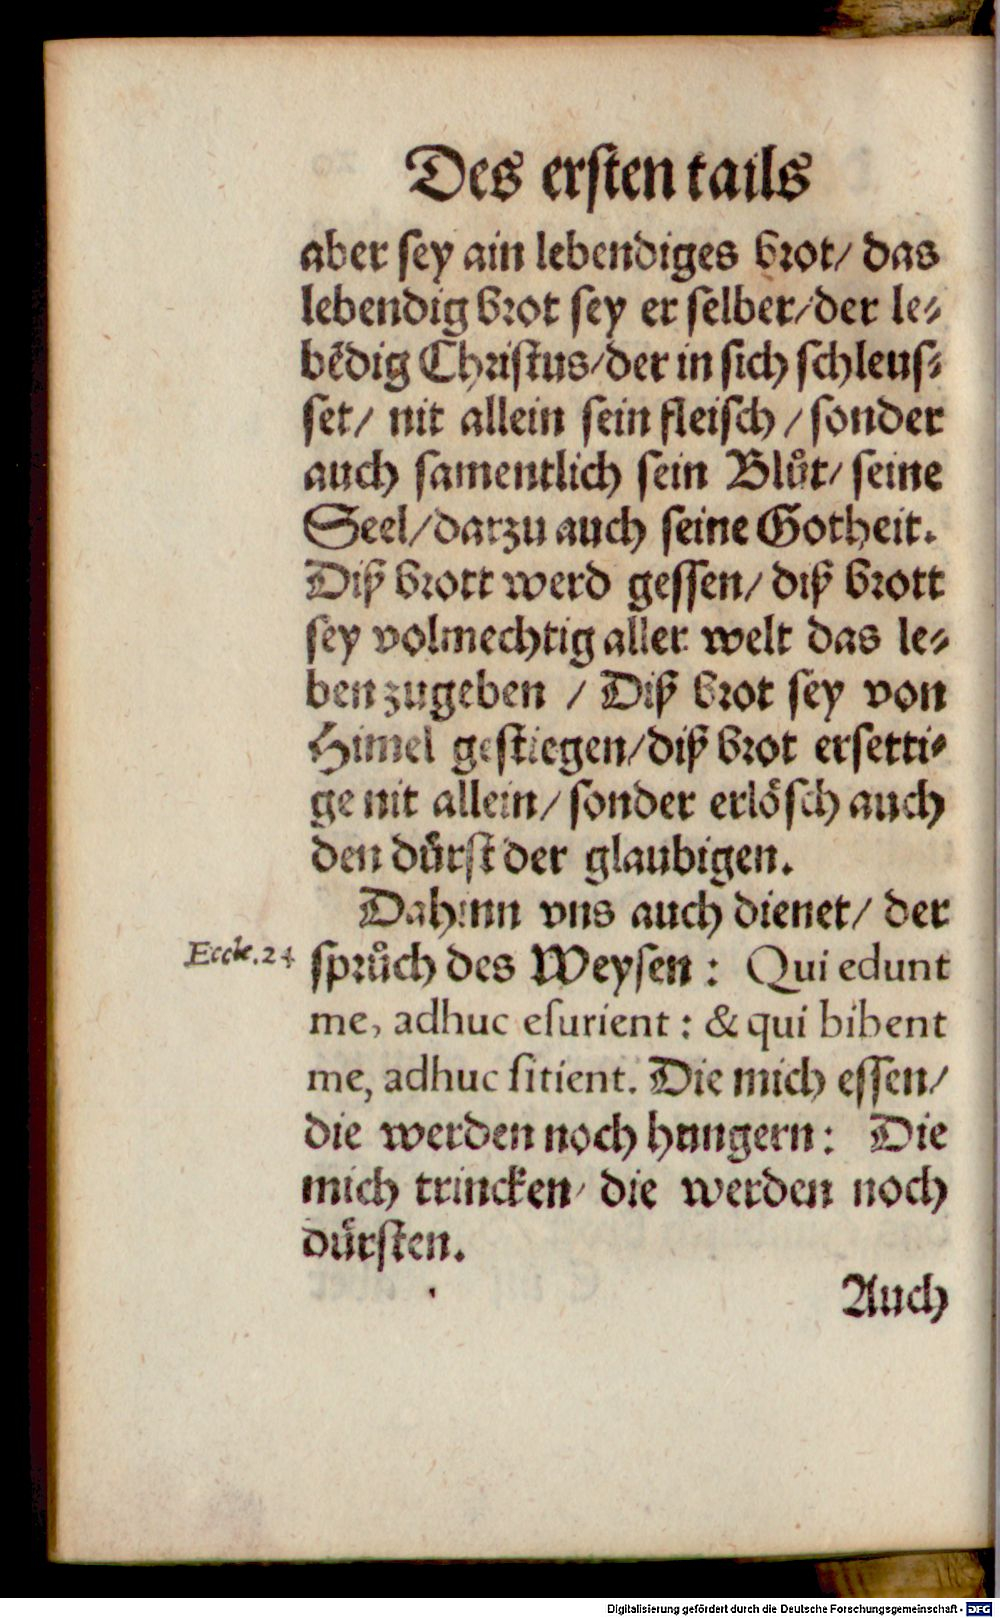 Des ersten tails
aber sey ain lebendiges brot/ das
lebendig brot sey er selber/der le⸗
bẽdig Christus/der in sich schleus⸗
set/ nit allein sein fleisch / sonder
auch samentlich sein Blůt/ seine
Seel/darzu auch seine Gotheit.
Diß brott werd gessen/ diß brott
sey volmechtig aller welt das le⸗
ben zugeben / Diß brot sey von
Himel gestiegen/diß brot ersetti⸗
ge nit allein/ sonder erloͤsch auch
den duͤrst der glaubigen.
Dahinn vns auch dienet/ der
Eccle.24 sprůch des Weysen : Qui edunt
me, adhuc eſurient : & qui bibent
me, adhuc ſitient. Die mich essen/
die werden noch hungern: Die
mich trincken/ die werden noch
duͤrsten.
Auch
Digitalisierung gefördert durch die Deutsche Forschungsgemeinschaft - DFG